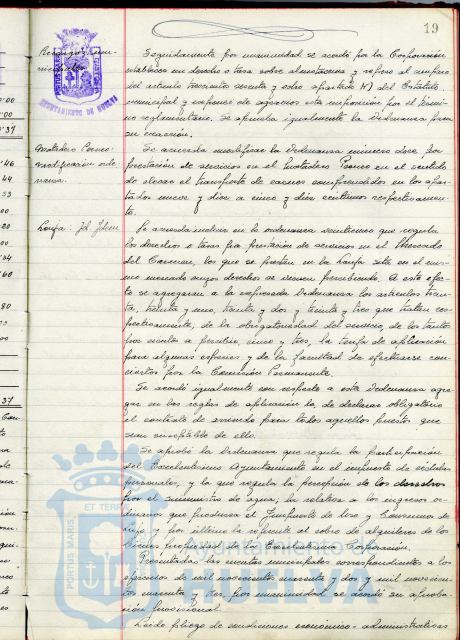 19
Seguidamente por unanimidad se acordó por la Corporación
establecer un derecho o tasa sobre almotacenia y repeso al amparo
del artículo trescientos sesenta y ocho apartado H) del Estatuto
municipal y exponer de agravios esta imposición por el término
reglamentario. Se aprueba igualmente la Ordenanza para
su exacción.
Matadero Porcino
modificación orde
nanza.
Se acuerda modificar la Ordenanza número doce por
prestación de servicios en el Matadero Porcino en el sentido
de elevar el transporte de carnes comprendidos en los apar-
tados nueve y diez a cinco y diez céntimos respectivamen-
te.
Lonja: Id Idem
Se acuerda incluir en la ordenanza veintinueve que regula
los derechos o tasas por prestación de servicios en el Mercado
del Carmen, los que se presten en la Lonja sita en el mis-
mo mercado cuyos derechos se vienen percibiendo. A este efec-
to se agregaran a la expresada Ordenanza los artículos trein-
ta, treinta y uno, treinta y dos y treinta y tres que tratan res-
pectivamente, de la obligatoriedad del servicio, de los tantos
por ciento a percibir, cinco y tres, la tarifa de aplicación
para algunas especies y de la facultad de efectuarse con-
ciertos por la Comisión Permanente.
Se acordó igualmente con respecto a esta Ordenanza agre
gar en las reglas de aplicación la, de declarar obligatorio
el contrato de arriendo para todos aquellos puestos que
sean susceptible de ello.
Se aprobó la Ordenanza que regula la participación
del Excelentísimo Ayuntamiento en el impuesto de cédulas
personales, y la que regula la percepción de los derechos
por el suministro de agua, la relativa a los ingresos or-
dinarios que produzca el Impuesto de Uso y Consumos de
Lujo y por último la referente al cobro de alquileres de los
bienes propiedad de la Excelentísima Corporación.
Presentadas las cuentas municipales correspondientes a los
ejercicios de mil novecientos cuarenta y dos y mil novecien-
tos cuarenta y tres, por unanimidad se acordó su aproba-
ción provisional.
Leído pliego de condiciones económico-administrativas
PORTUS MARIS
ET TERR
Ayuntamiento de
HUELVA
AYUNTAMIENTO DE HUELVA